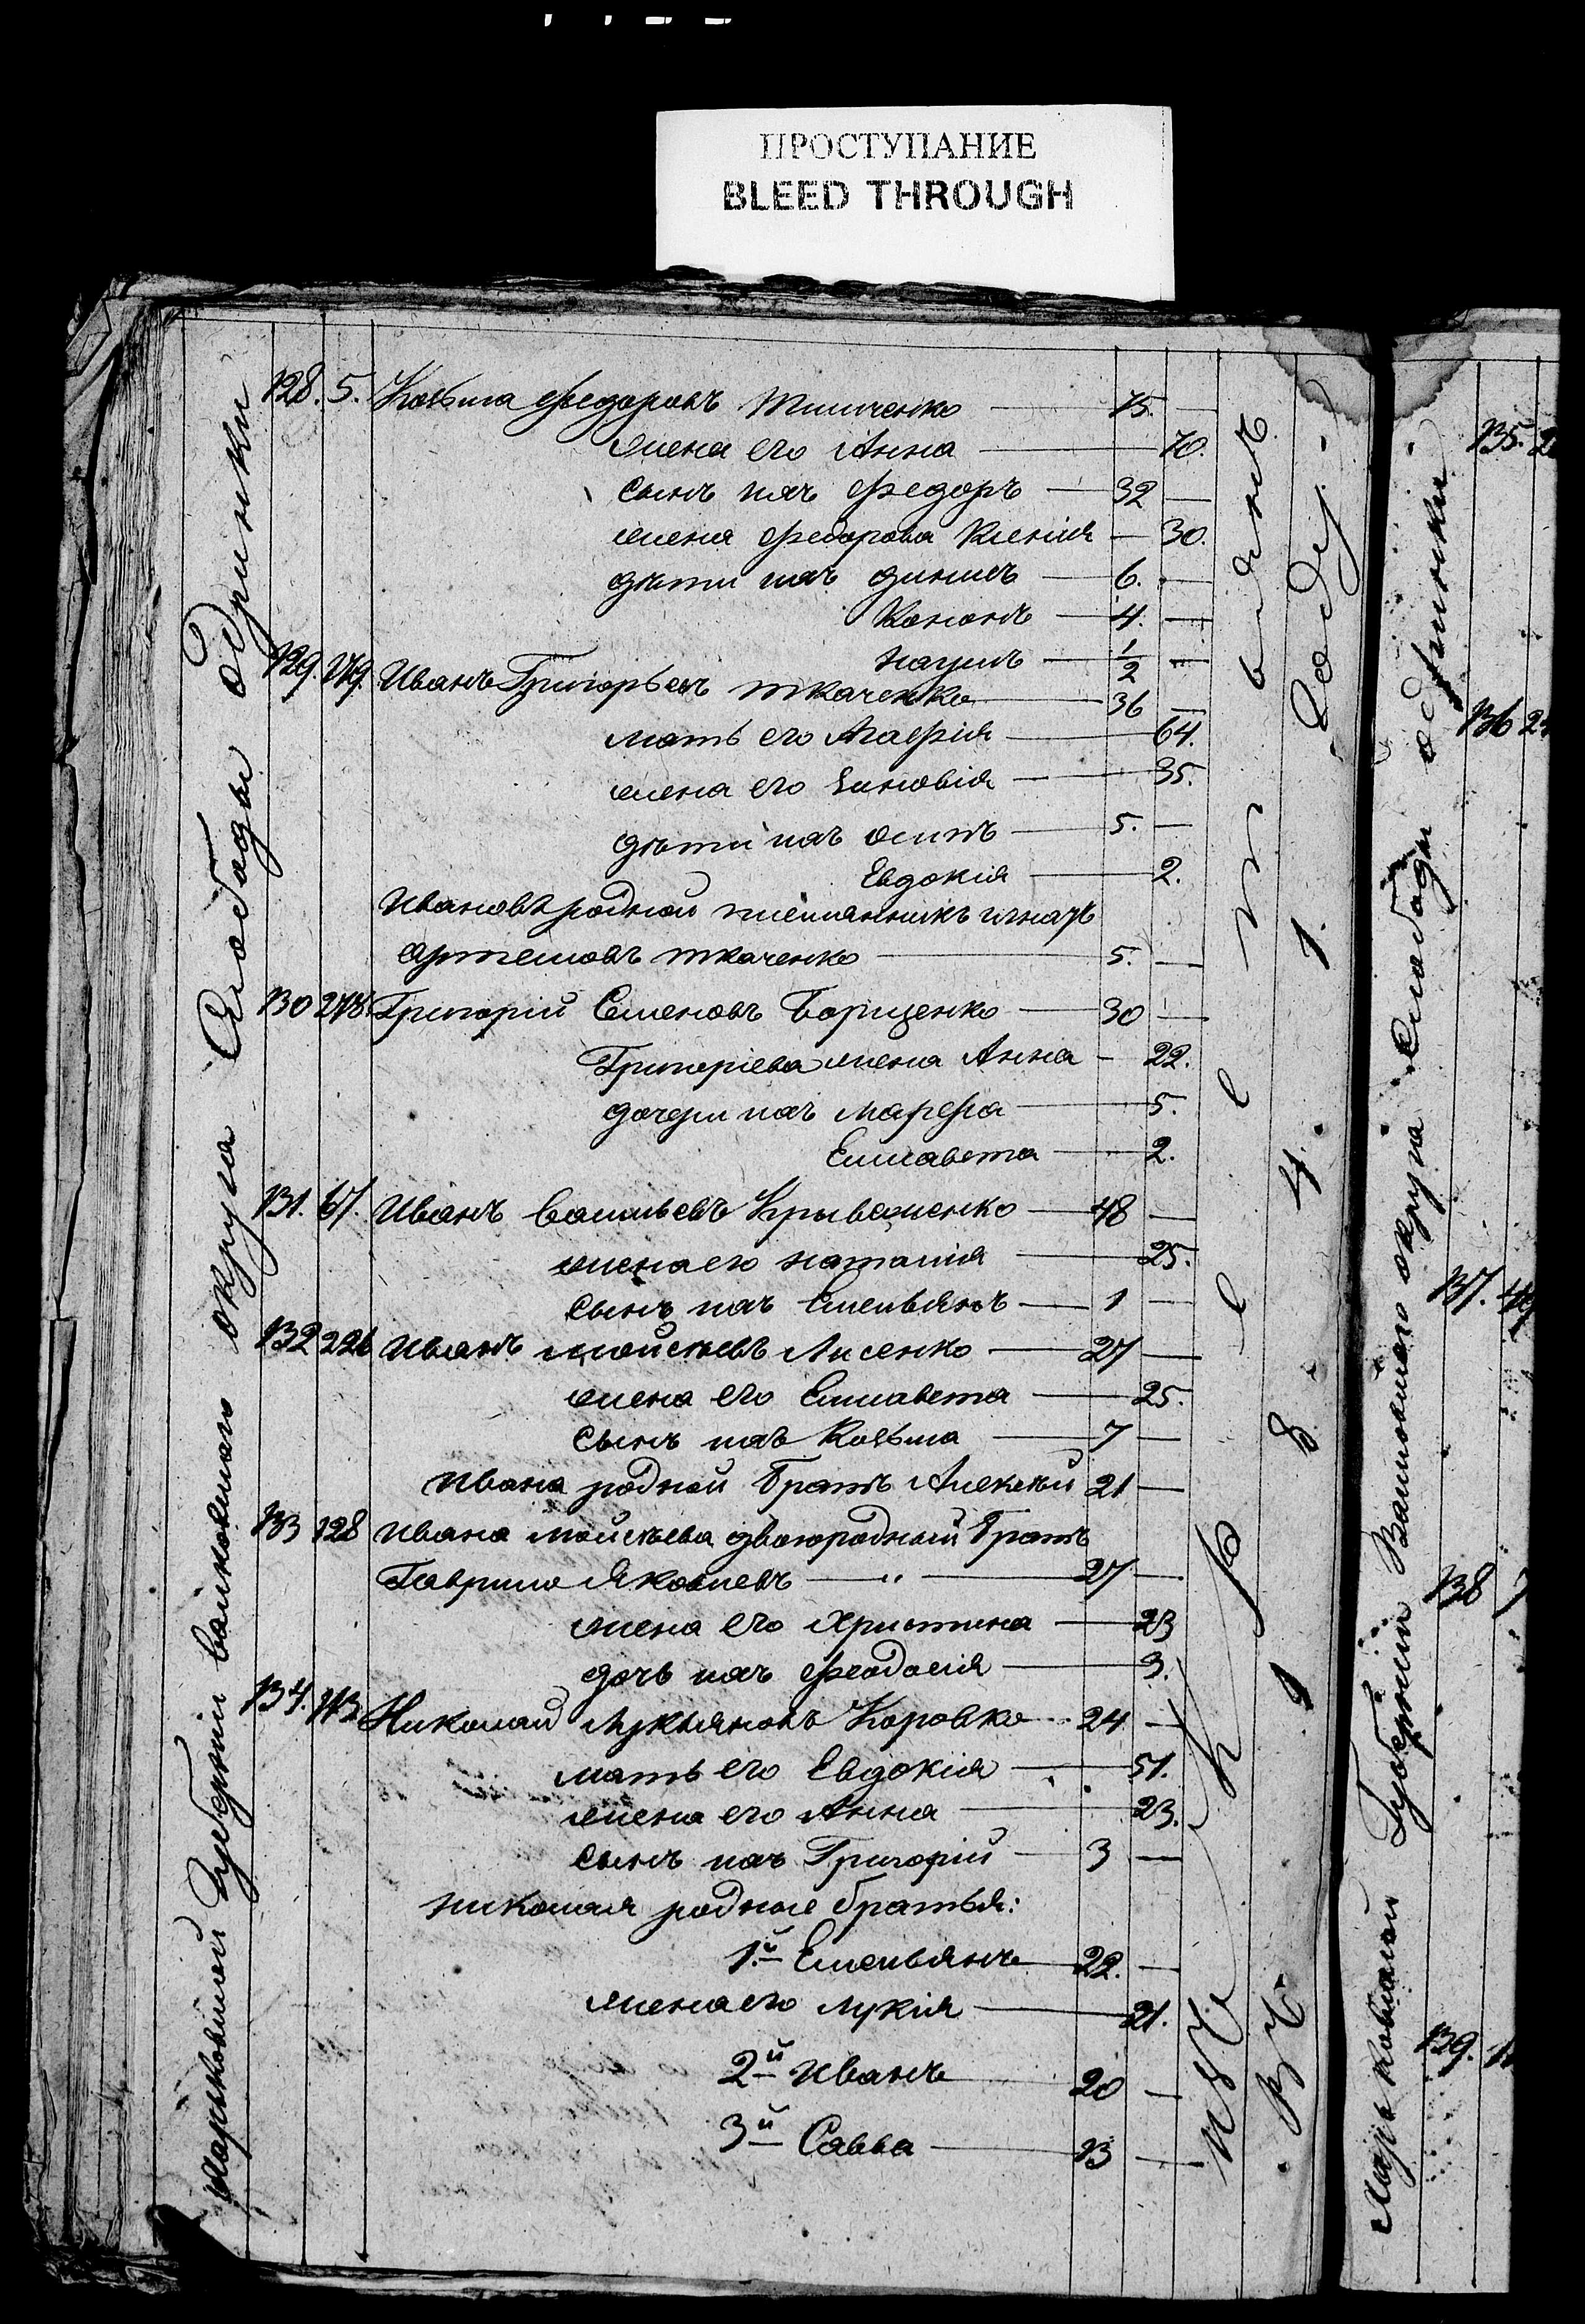 ПРОСТУПАНИЕ
BLEED THROUGH
Харьковской Губерніи валковскаго округа Слободы одринки
128. 5. Козьма федоровъ Тимченко — 75. —
жена его Анна — 70.
сынъ ихъ федоръ — 32 —
жена федорова Ксенія — 30.
дѣти ихъ — 6. —
Кононъ — 4. —
наумъ — 1/2 —
129. 279. Иванъ Григорьевъ ткаченко — 36 —
мать его Агафія — 64.
жена его Зиновія — 35.
дѣти ихъ осипъ — 5. —
Евдокія — 2.
Ивановъ родной племянникъ игнатъ
артемовъ ткаченко — 5. —
130 278. Григорій Семеновъ Борщенко — 30 —
Григоріева жена Анна — 22.
дочери ихъ марфа — 5.
Елисавета — 2.
131. 67. Иванъ васильевъ — 48 —
жена его наталія — 25.
сынъ ихъ Емельянъ — 1 —
132 226 Иванъ мойсѣевъ Лисенко — 27 —
жена его Елисавета — 25.
сынъ ихъ Козьма — 7 —
ивана родной братъ Алексѣй 21 —
133 128 ивана мойсѣева двоюродный братъ
Гаврило Яковлевъ — „ — 27 —
жена его христина — 23
дочь ихъ феодосія — 3.
134. 113 Николай Лукьяновъ Коровка 24 —
мать его Евдокія — 51.
жена его Анна — 23.
сынъ ихъ Григорій — 3 —
николая родные братья:
1.й Емельянъ — 22. —
жена его лукія — 21.
2й иванъ — 20 —
3й Савва — 13 —
въ 1841. Году.
Харьковской Губерніи Валковскаго округа Слободы одринки
135.
136
137.
138
139.